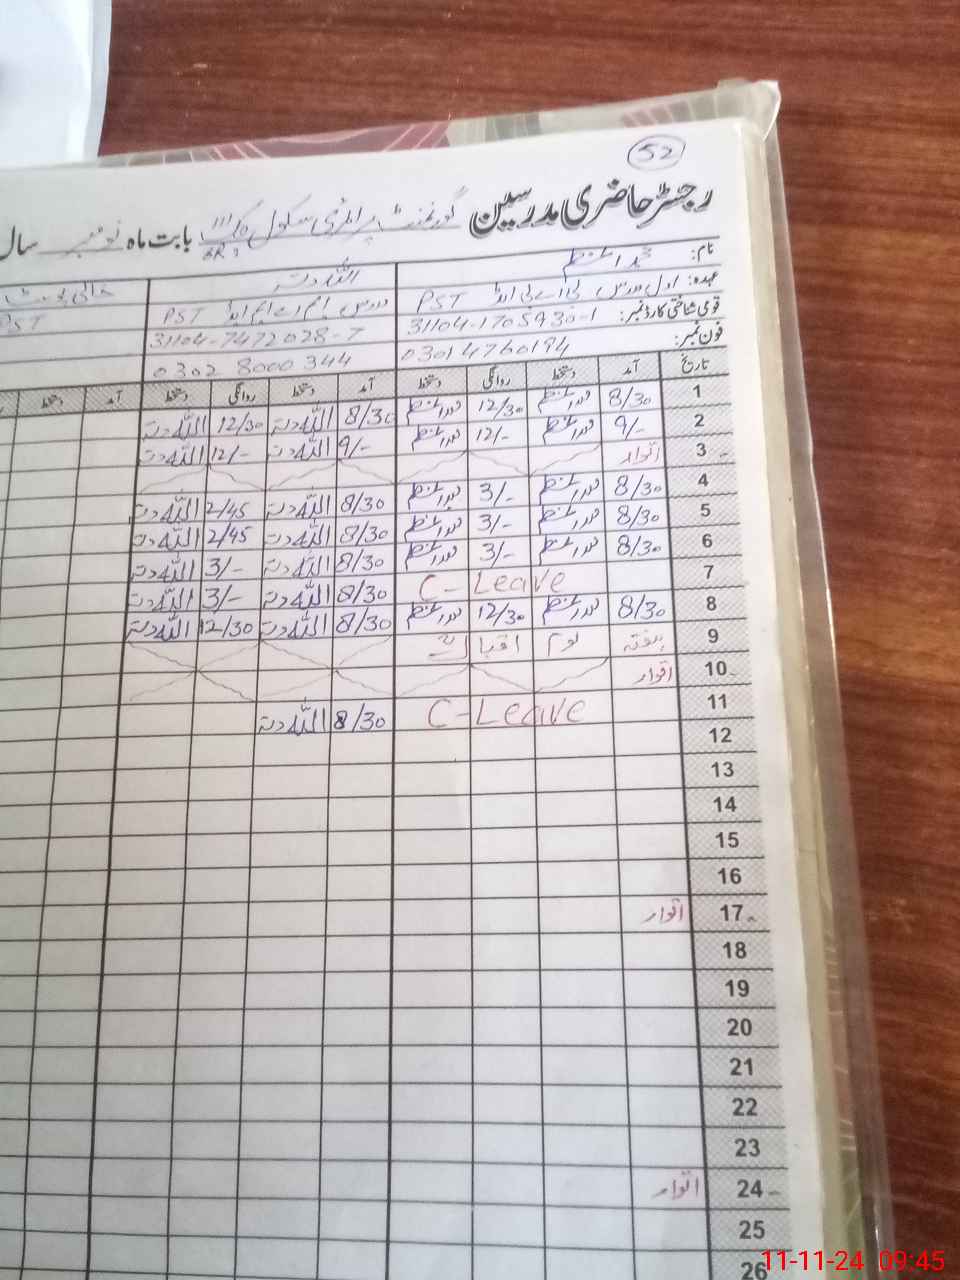 52
رجسٹر حاضری مدرسین گورنمنٹ پرائمری سکول بابت ماہ نومبر سال
نام: محمد اعظم اللہ دتہ
عہدہ: اول مدرس بی اے بی ایڈ PST مدرس ایم اے ایم ایڈ PST PST
قومی شناختی کارڈ نمبر: 31104-1705930-1 31104-7472028-7
فون نمبر: 03014760194 0302 8000 344
تاریخ آمد دستخط روانگی دستخط آمد دستخط روانگی دستخط آمد دستخط
1 8/30 محمد اعظم 12/30 محمد اعظم 8/30 اللہ دتہ 12/30 اللہ دتہ
2 9/- محمد اعظم 12/- محمد اعظم 9/- اللہ دتہ 12/- اللہ دتہ
3 اتوار
4 8/30 محمد اعظم 3/- محمد اعظم 8/30 اللہ دتہ 2/45 اللہ دتہ
5 8/30 محمد اعظم 3/- محمد اعظم 8/30 اللہ دتہ 2/45 اللہ دتہ
6 8/30 محمد اعظم 3/- محمد اعظم 8/30 اللہ دتہ 3/- اللہ دتہ
7 C-Leave 8/30 اللہ دتہ 3/- اللہ دتہ
8 8/30 محمد اعظم 12/30 محمد اعظم 8/30 اللہ دتہ 12/30 اللہ دتہ
9 ہفتہ یوم اقبال
10 اتوار
11 C-Leave 8/30 اللہ دتہ
12
13
14
15
16
17 اتوار
18
19
20
21
22
23
24 اتوار
25
26
11-11-24 09:45